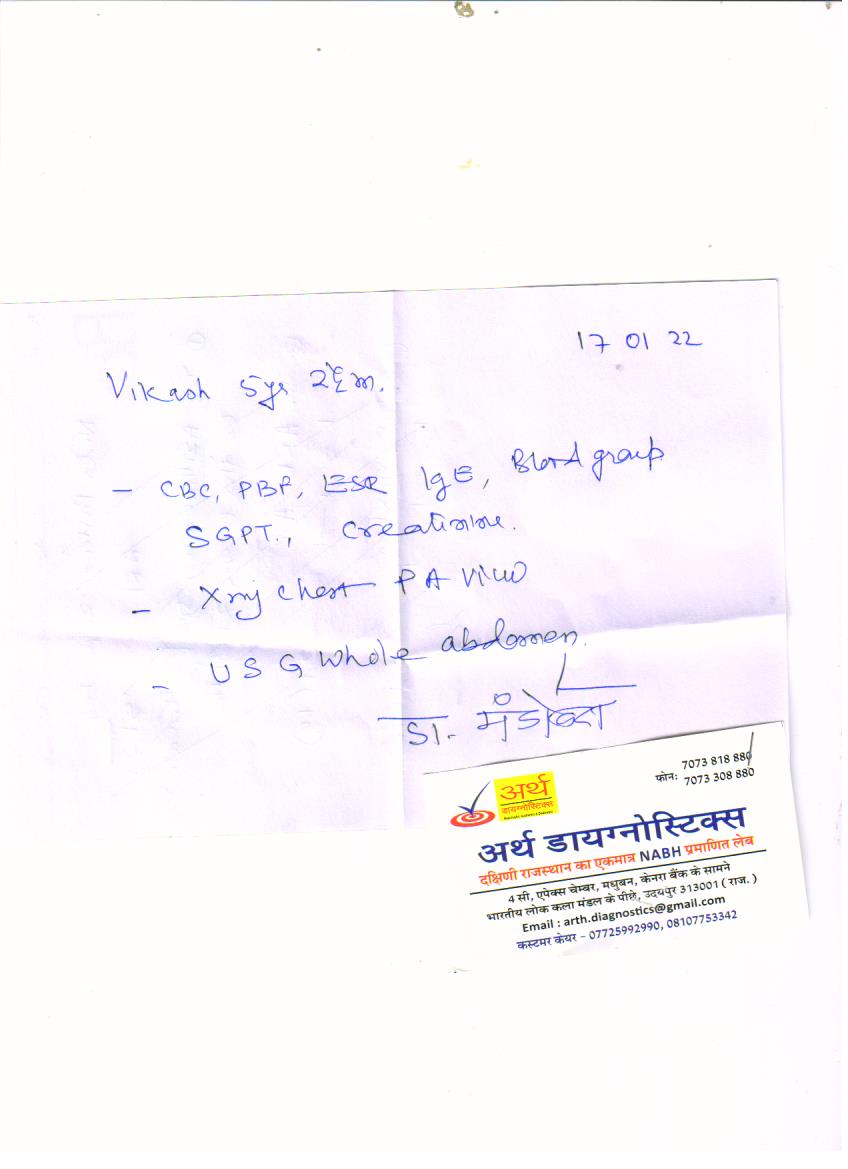 17 01 22
Vikash 5yr
- CBC, PBF, ESR IgE, Blood group
SGPT., Creatinine.
- Xray Chest PA View
- USG Whole abdomen.
डा.
7073 818 880
फोन: 7073 308 880
अर्थ
डायग्नोस्टिक्स
अर्थ डायग्नोस्टिक्स
दक्षिणी राजस्थान का एकमात्र NABH प्रमाणित लेब
4 सी, एपेक्स चेम्बर, मधुबन, केनरा बैंक के सामने
भारतीय लोक कला मंडल के पीछे, उदयपुर 313001 ( राज. )
Email : arth.diagnostics@gmail.com
कस्टमर केयर - 07725992990, 08107753342